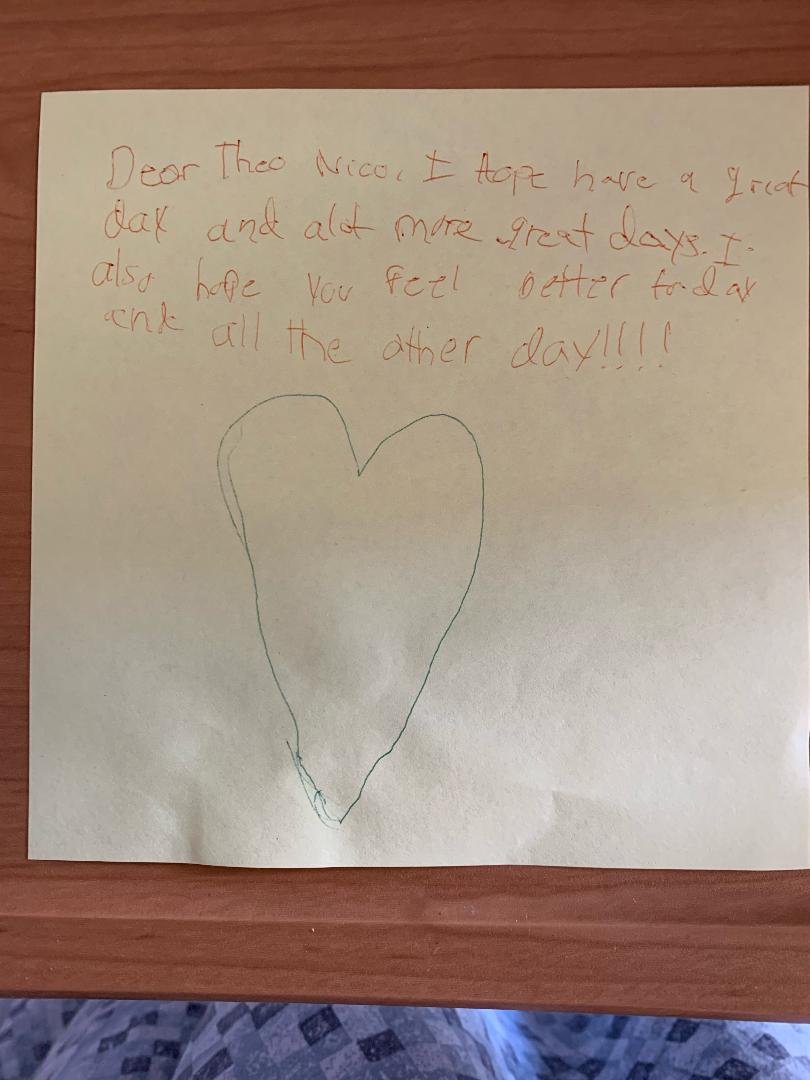 Dear Theo Nico, I Hope have a great
day and alot more great days. I
also hope you feel better to-day
and all the other day!!!!